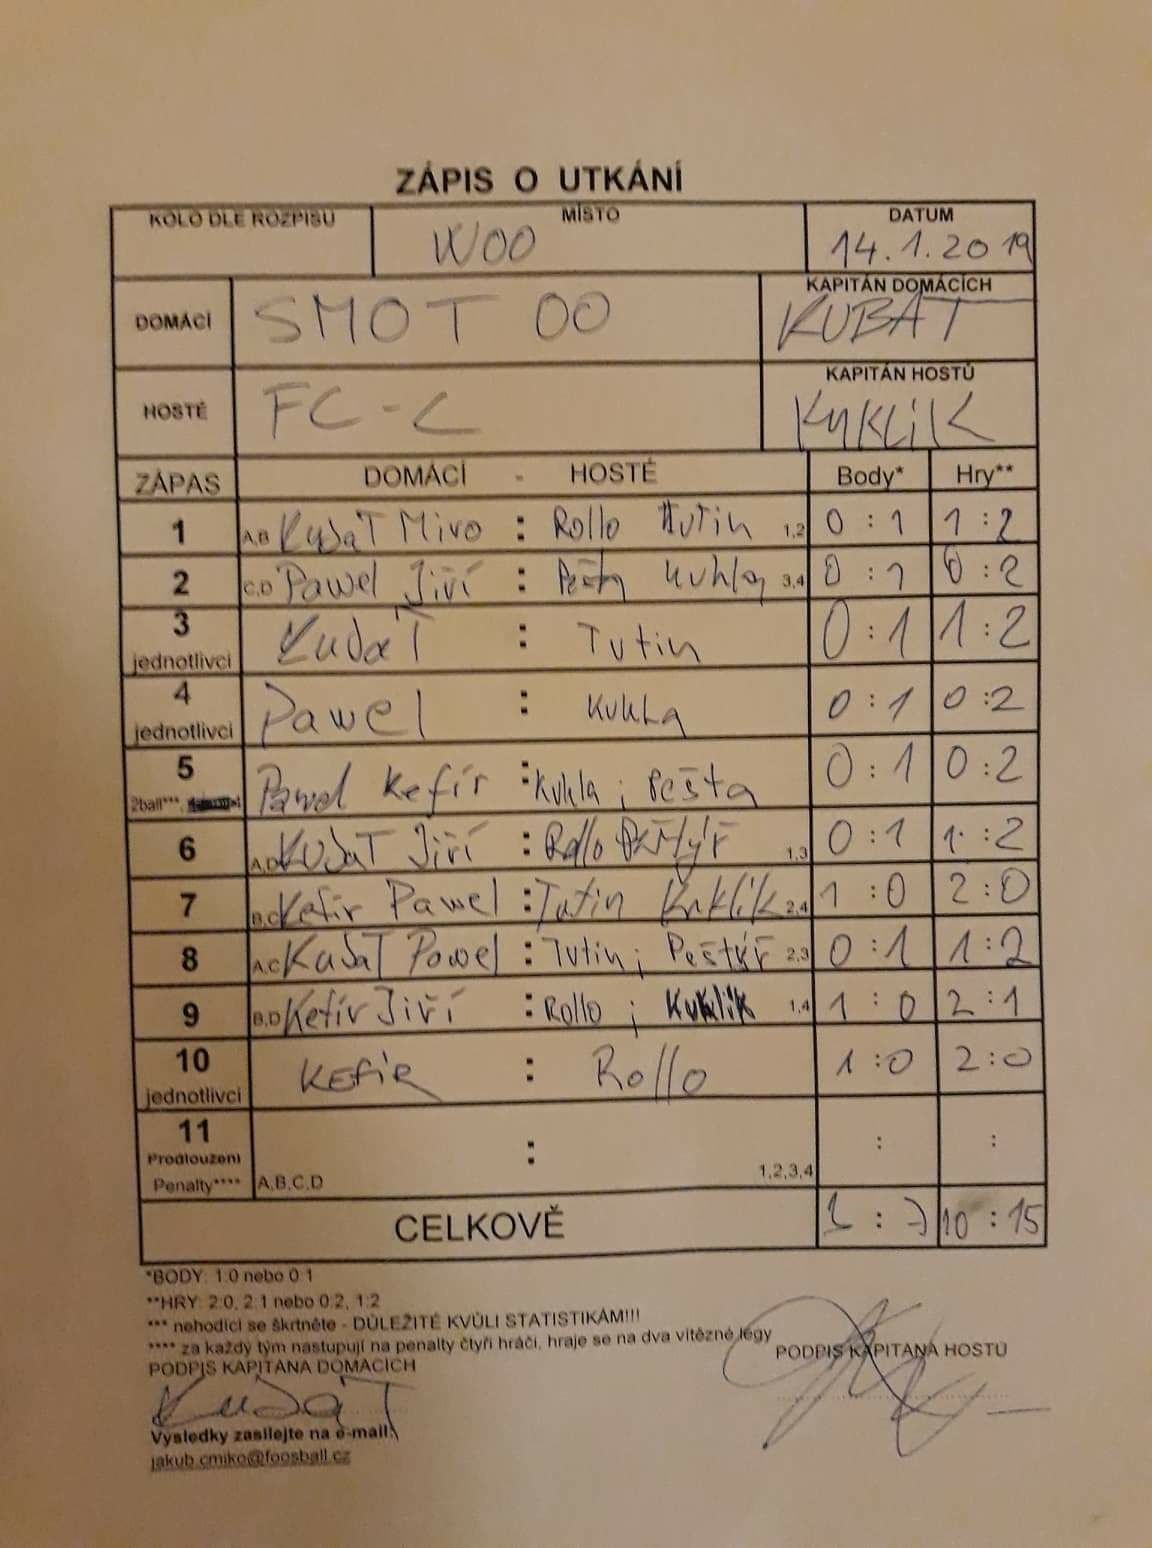 ZÁPIS O UTKÁNÍ
KOLO DLE ROZPISU MÍSTO DATUM
WOO 14.1.2019
DOMÁCÍ SMOT OO KAPITÁN DOMÁCÍCH
KUBÁT
HOSTÉ FC-C KAPITÁN HOSTŮ
KYKLIK
ZÁPAS DOMÁCÍ - HOSTÉ Body* Hry**
1 A,B Kubát Miro : Rollo Tutin 1,2 0 : 1 1 : 2
2 C,D Pawel Jiří : Pešta Kuhla 3,4 0 : 1 0 : 2
3 jednotlivci Kubát : Tutin 0 : 1 1 : 2
4 jednotlivci Pawel : Kukla 0 : 1 0 : 2
5 2ball***, Pawel Kefír : Kukla ; Pešta 0 : 1 0 : 2
6 A,D Kubát Jiří : Rollo 1,3 0 : 1 1 : 2
7 B,C Kefír Pawel : Tutin Kuklík 2,4 1 : 0 2 : 0
8 A,C Kubát Pawel : Tutin ; Peštýř 2,3 0 : 1 1 : 2
9 B,D Kefír Jiří : Rollo ; Kuklík 1,4 1 : 0 2 : 1
10 jednotlivci KEFÍR : Rollo 1 : 0 2 : 0
11 Prodloužení Penalty**** A,B,C,D : 1,2,3,4 : :
CELKOVĚ : 7 10 : 15
*BODY: 1:0 nebo 0:1
**HRY: 2:0, 2:1 nebo 0:2, 1:2
*** nehodící se škrtněte - DŮLEŽITÉ KVŮLI STATISTIKÁM!!!
**** za každý tým nastupují na penalty čtyři hráči, hraje se na dva vítězné légy
PODPIS KAPITÁNA DOMÁCÍCH PODPIS KAPITÁNA HOSTŮ
Kubát
Výsledky zasílejte na e-mail:
jakub.cmiko@foosball.cz